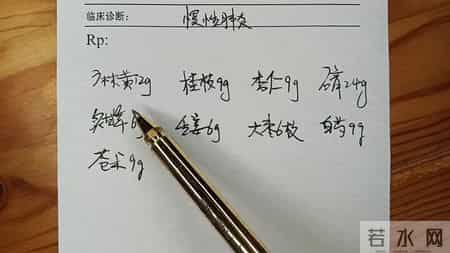 临床诊断： 慢性肺炎
Rp:
麻黄12g 桂枝9g 杏仁9g 石膏24g
炙甘草6g 生姜6g 大枣6枚 白芍9g
苍术9g
若水网